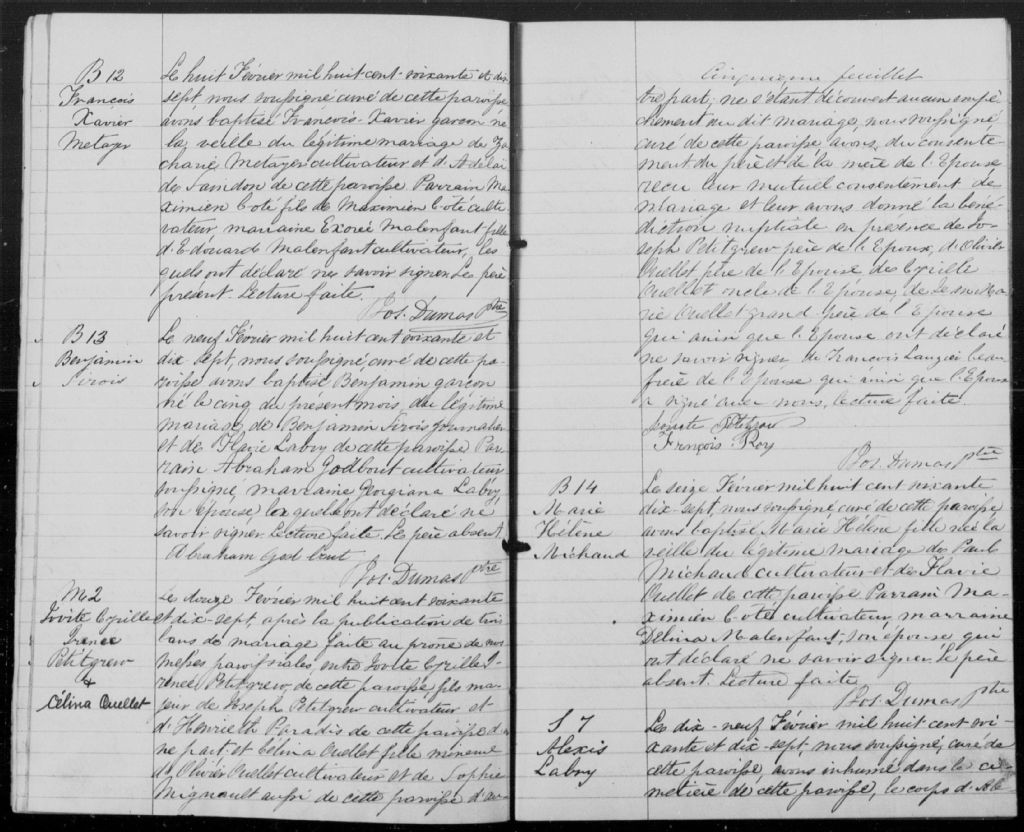 B 12
François
Xavier
Metayer
Le huit Février mil huit cent soixante et dix
sept, nous soussigné curé de cette paroisse
avons baptisé François-Xavier garçon né
la veille du légitime mariage de Za-
charie Metayer cultivateur et d'Adelaï
de Samdon de cette paroisse Parrain Ma
ximien Coté fils de Maximien Coté culti-
vateur marraine Exorée Malenfant fille
d'Edouard Malenfant cultivateur, les
quels ont déclaré ne savoir signer. Le père
présent. Lecture faite.
Jos. Dumas Ptre
B 13
Benjamin
Sirois
Le neuf Février mil huit cent soixante et
dix-sept, nous soussigné, curé de cette pa-
roisse avons baptisé Benjamin garçon
né le cinq du présent mois du légitime
mariage de Benjamin Sirois journalier
et de Flavie Labry de cette paroisse Par
rain Abraham Godbout cultivateur
soussigné, marraine Georgiana Labry,
son épouse, laquelle ont déclaré ne
savoir signer. Lecture faite. Le père absent.
Abraham God bout
Jos. Dumas Ptre
M 2
Jovite Cyrille
Irenée
Petitgrew
+
Célina Ouellet
Le douze Février mil huit cent soixante
et dix-sept après la publication de trois
bans de mariage faite au prône de nos
messes paroissiales entre Jovite Cyrille I-
renée Petitgrew, de cette paroisse, fils ma-
jeur de Joseph Petitgrew cultivateur et
d'Henriette Paradis de cette paroisse d'u-
ne part et Célina Ouellet fille mineure
de Olivier Ouellet cultivateur et de Sophie
Mignault aussi de cette paroisse d'au-
Cinquième feuillet
tre part; ne s'étant découvert aucun empê-
chement au dit mariage, nous soussigné
curé de cette paroisse avons, du consente-
ment du père et de la mère de l'Epouse
reçu leur mutuel consentement de
mariage et leur avons donné la béné-
diction nuptiale en présence de Jo-
seph Petitgrew père de l'Epoux, d'Olivier
Ouellet père de l'Epouse de Cyrille
Ouellet oncle de l'Epouse, de Jean Ma
rie Ouellet grand père de l'Epouse
qui ainsi que l'Epouse ont déclaré
ne savoir signer de François Lauzier beau
frère de l'Epouse qui ainsi que l'Epoux
a signé avec nous, lecture faite.
Petitgrew
François Roy
Jos. Dumas Ptre
B 14
Marie
Hélène
Michaud
Le seize Février mil huit cent soixante
dix-sept, nous soussigné curé de cette paroisse
avons baptisé Marie Hélène fille née la
veille du légitime mariage de Paul
Michaud cultivateur et de Flavie
Ouellet de cette paroisse Parrain Ma-
ximien Coté cultivateur, marraine
Délina Malenfant son épouse qui
ont déclaré ne savoir signer. Le père
absent. Lecture faite
Jos. Dumas Ptre
S 7
Alexis
Labry
Le dix-neuf Février mil huit cent soi-
xante et dix-sept, nous soussigné, curé de
cette paroisse, avons inhumé dans le ci-
metière de cette paroisse, le corps d'Ale